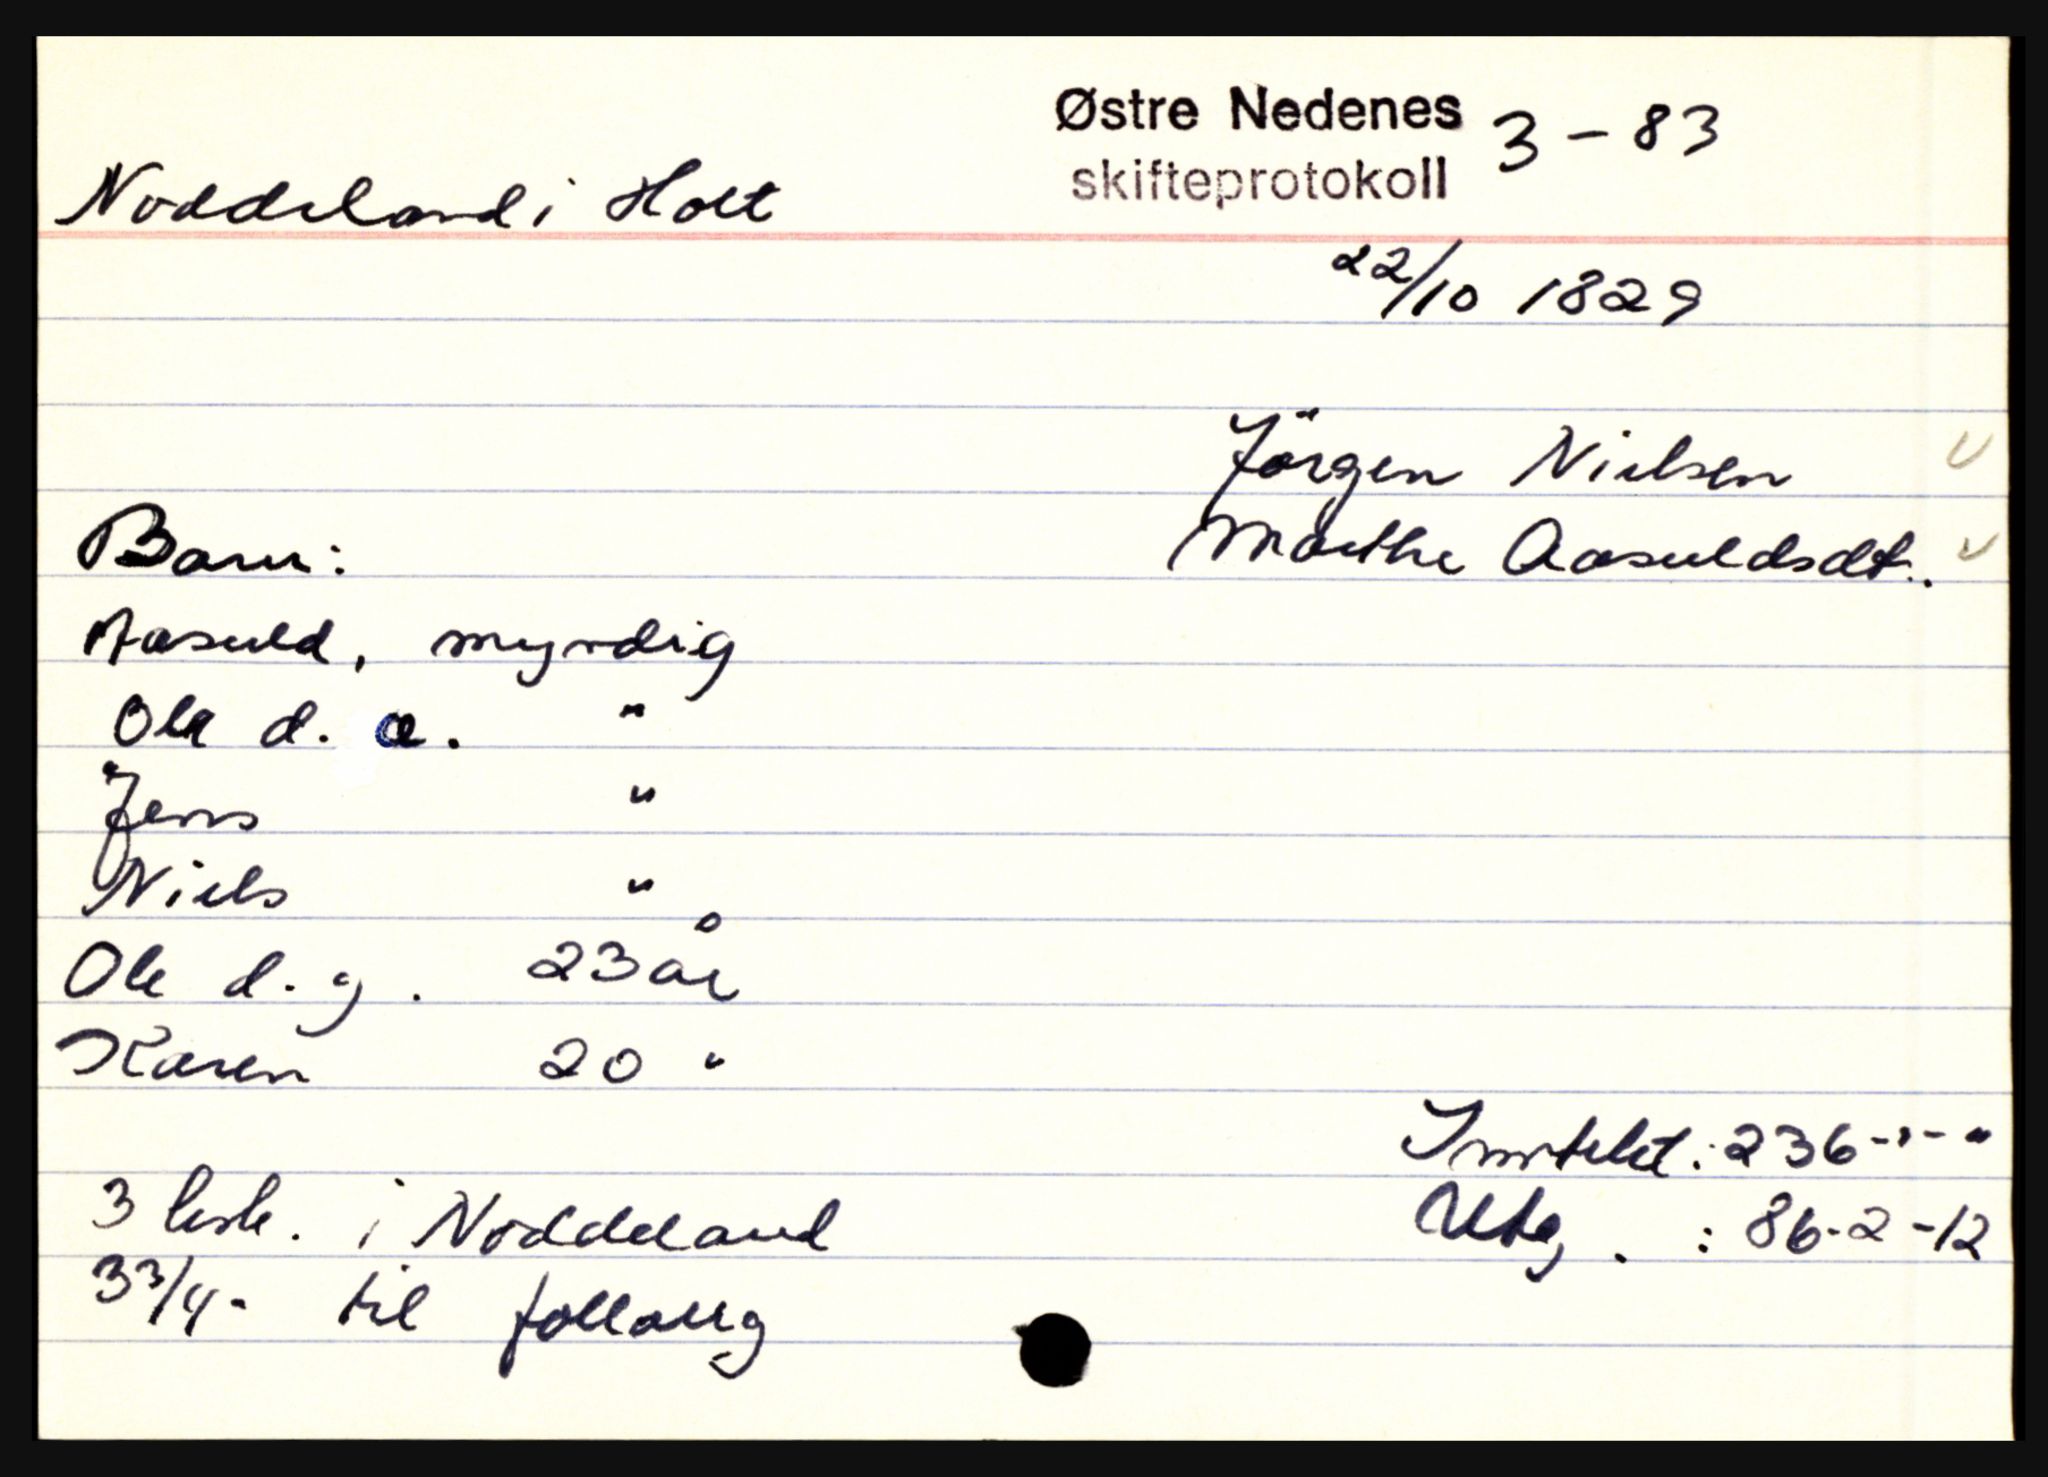 Østre Nedenes 3 - 83
skifteprotokoll
Noddeland i Holt
22/10 1829
Jörgen Nielsen
Marthe Aasuldsdt.
Barn:
Aasuld, myndig
Ole d. e. "
Jens "
Niels "
Ole d. y. 23 år
Karen 20 "
Inntekt: 236-"-"
Utg. : 86-2-12
3 i Noddeland
3 3/4 - til